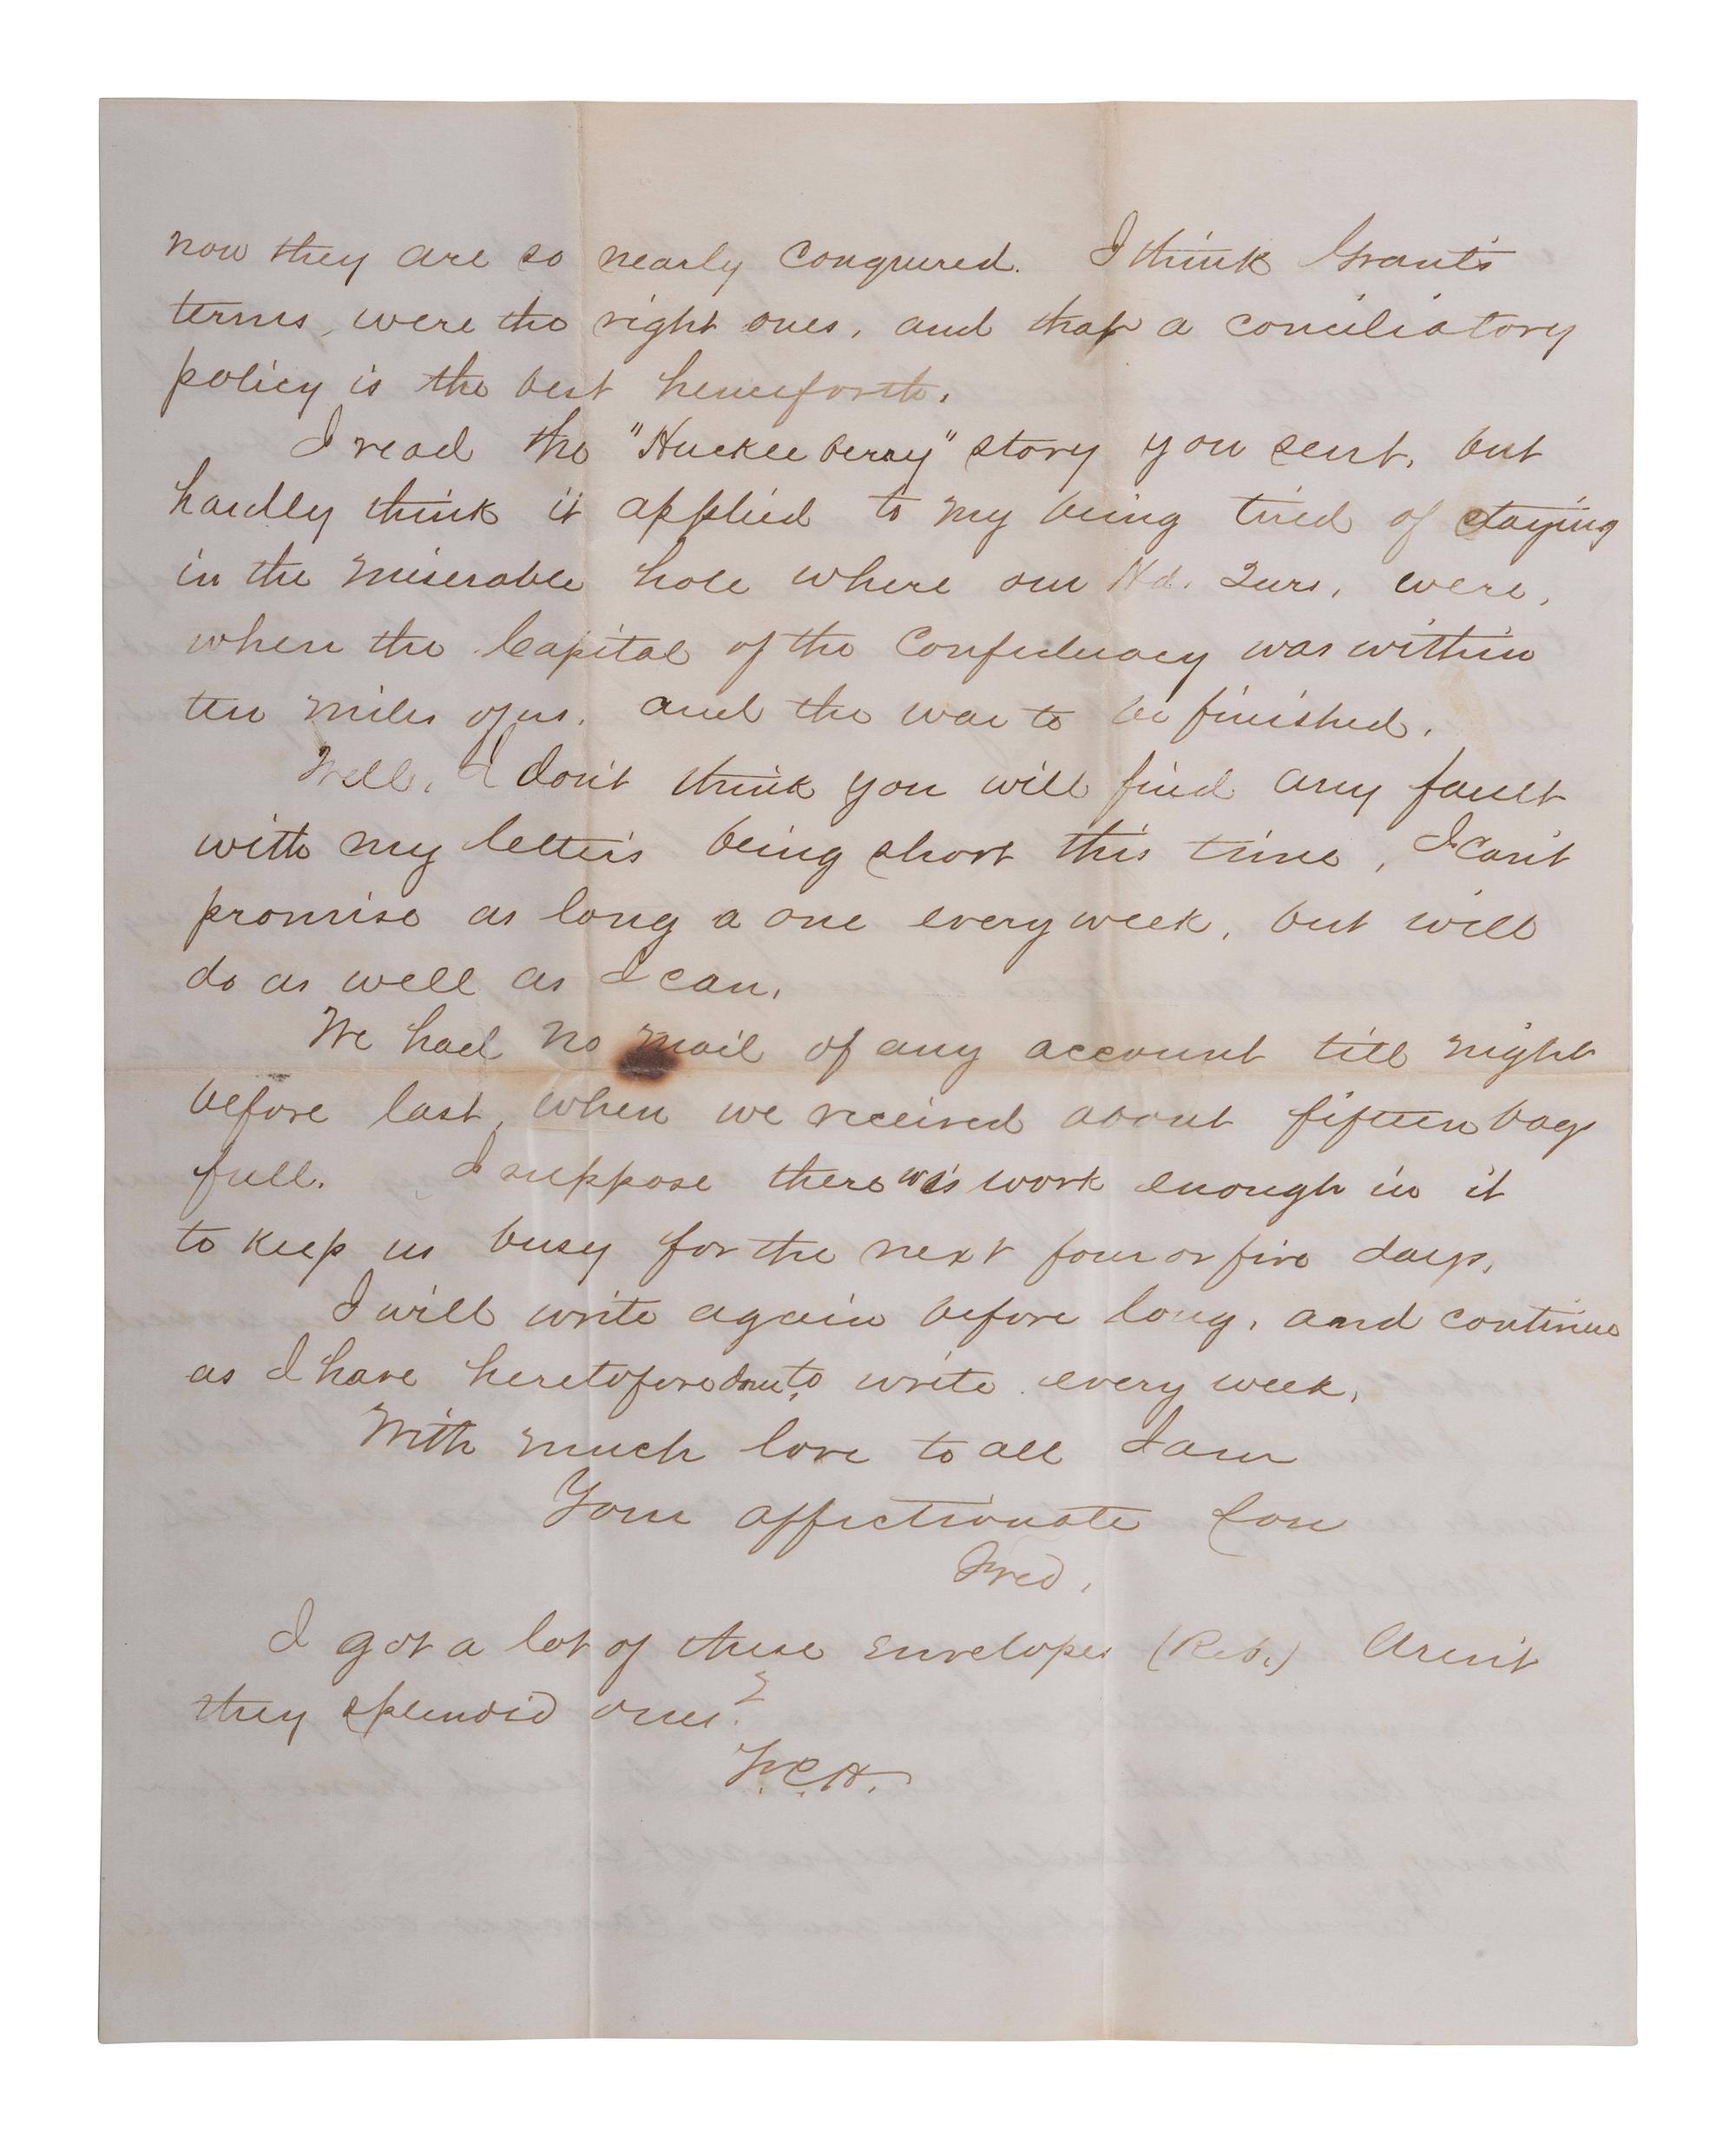 now they are so nearly conqured. I think Grant's
terms, were the right ones, and that a conciliatory
policy is the best henceforth.
I read the "Huckleberry" story you sent, but
hardly think it applied to my being tired of staying
in the miserable hole where our Hd. Qurs. were,
when the Capital of the Confederacy was within
ten miles of us. and the war to be finished.
Well, I don't think you will find any fault
with my letter's being short this time, I can't
promise as long a one every week, but will
do as well as I can.
We had no mail of any account till night
before last, when we received about fifteen bags
full. I suppose there was work enough in it
to keep us busy for the next four or five days.
I will write again before long, and continue
as I have heretofore done, to write every week.
With much love to all I am
Your affectionate Son
Fred.
I got a lot of these envelopes (Reb.) Aren't
they splendid ones?
F.C.H.